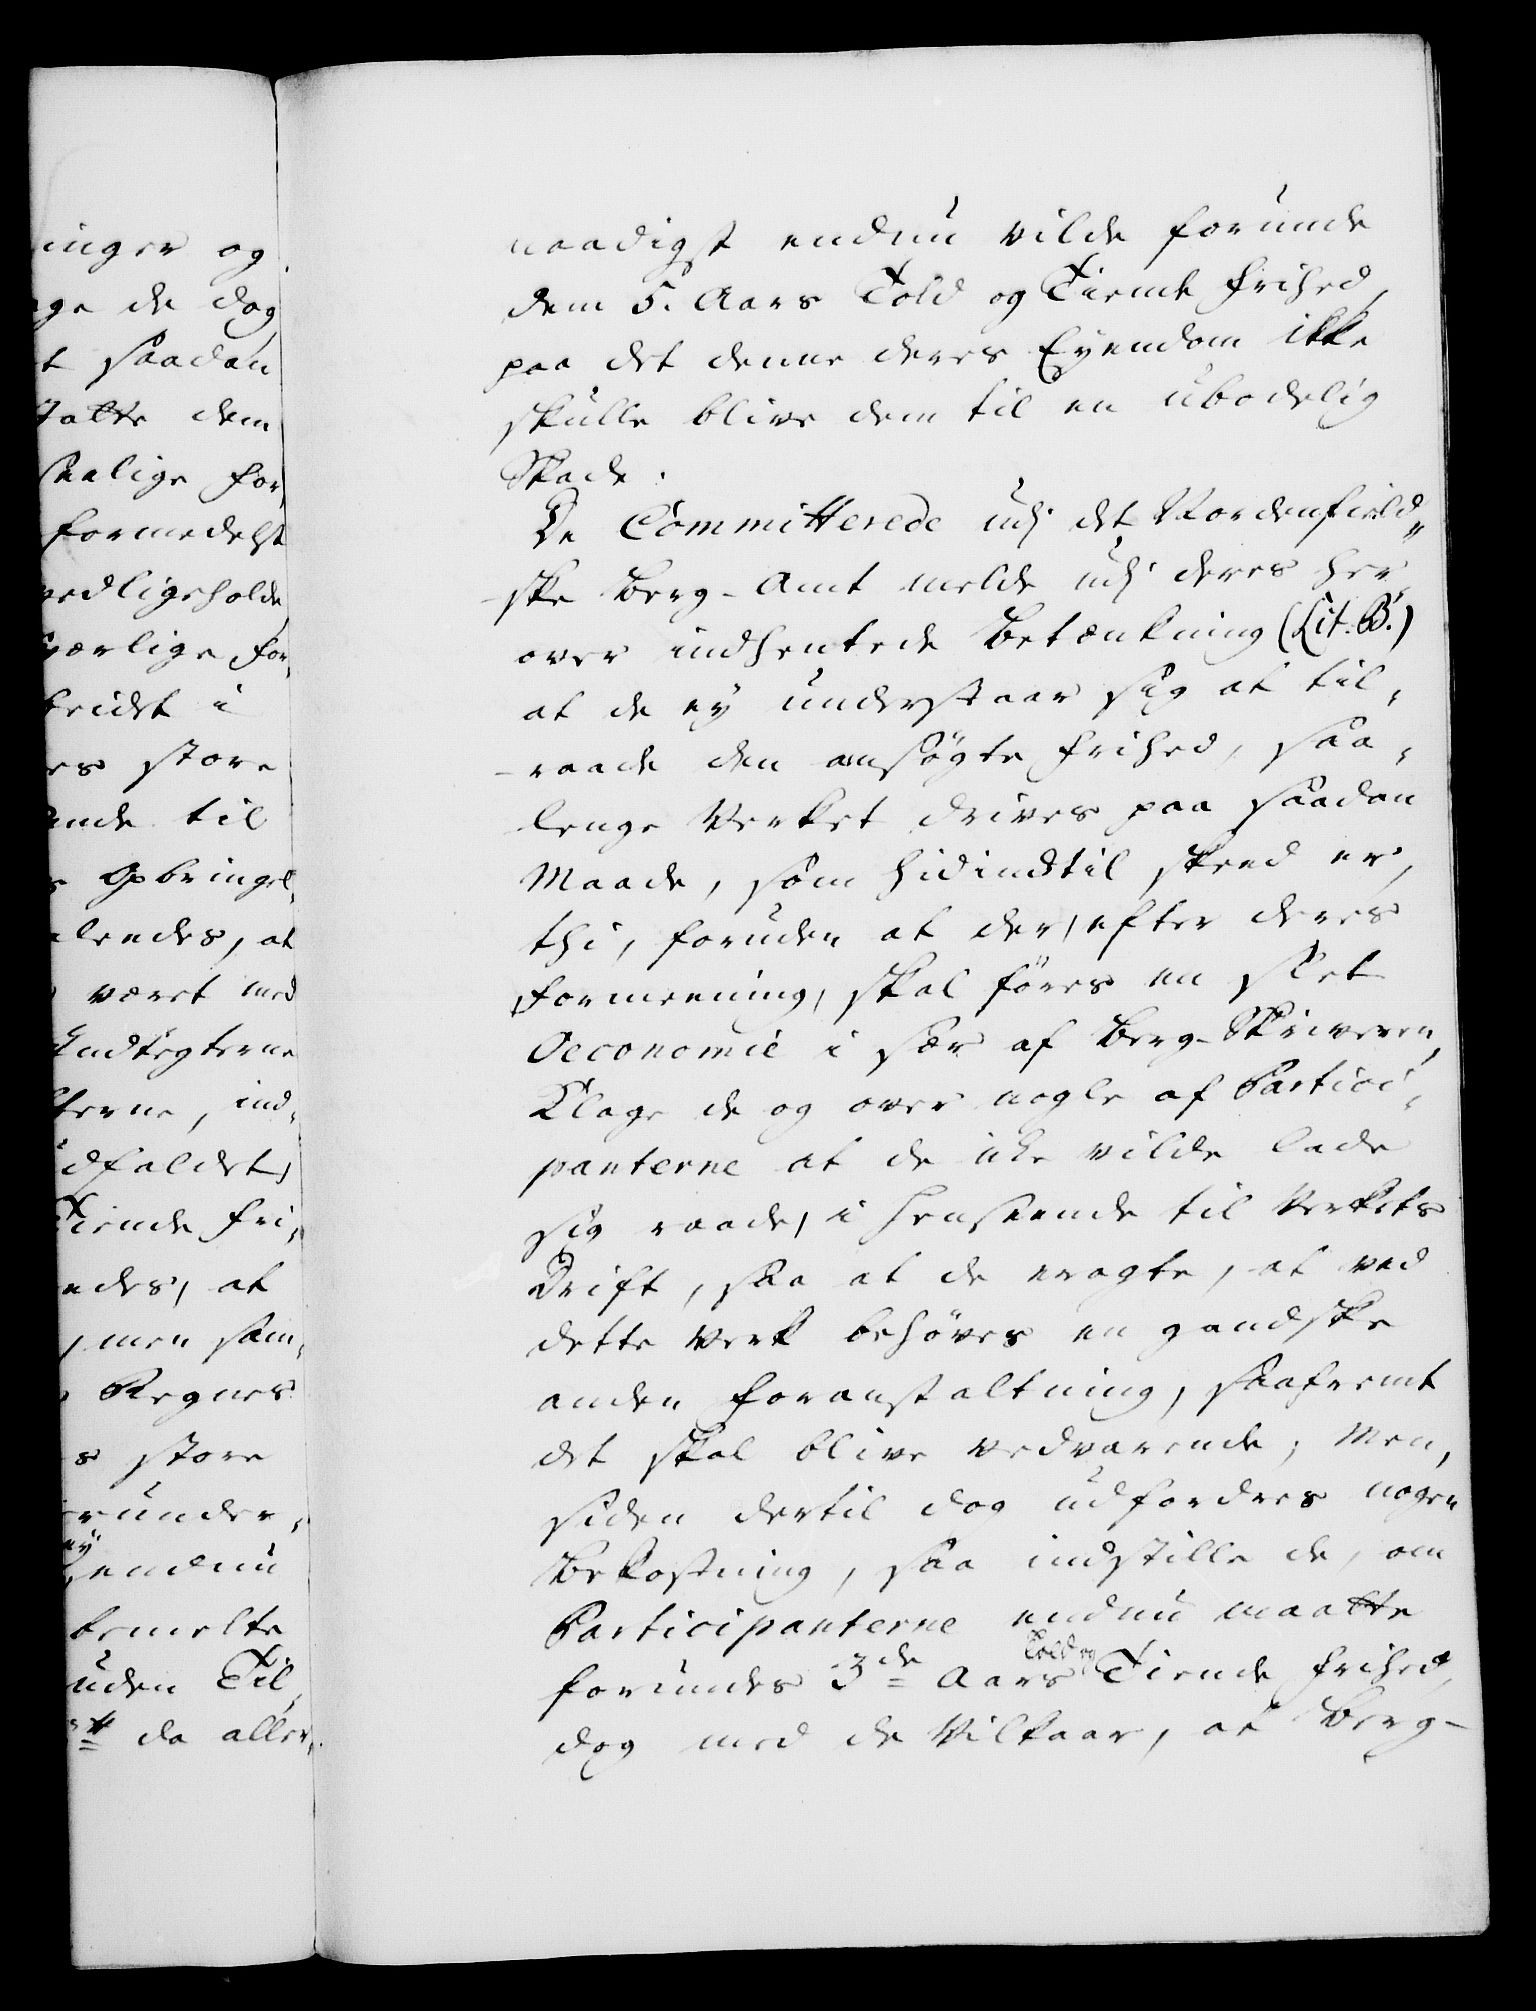 inger og
ge de dog
t saadan
tatte dem
saalige for,
formedelst
vedligeholde
værlige for,
beidet i
es store
ende til
s Opbringel,
lendes, at
været med
Indtegterne
terne, ind,
dfaldet,
Tiende fri,
edes, at
, men sam,
Regnes
s store
erunder,
ey
endnu
bemelte
uden Til,
da aller,
naadigst endnu vilde forunde
dem 5. Aars Told og Tiende frihed,
paa det denne deres Eyendom ikke
skulle blive dem til en ubodelig
Skade.
De Committerede udj det Nordenfield„
ske Berg-Amt melde udj deres her,
over indhentede Betænkning (Lit. B.)
at de ey understaar sig at til,
raade den ansøgte frihed, saa,
lenge Verket drives paa saadan
Maade, som hidindtil skeed er,
thi, foruden at der, efter deres
formeening, skal føres en slet
Oeconomie i sær af Berg-Skriveren,
Klage de og over nogle af Partici,
panterne at de ike vilde lade
sig raade, i henseende til Verkets
Drift, saa at de eragte, at ved
dette Verk behøves en gandske
anden foranstaltning, saafremt
det skal blive vedvarende; Men,
siden dertil dog udfordres nogen
Bekostning, saa indstille de, om
Participanterne endnu maatte
forundes 3de Aars Told og Tiende frihed,
dog med de Vilkaar, at Berg-